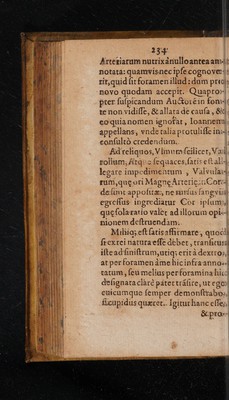 234
Arteriarum nutrix à nullo antea an-
notata: quamvis nec ipse cognove-
rit, quid sit foramen illud: dum pro
novo quodam accepit. Quapro-
pter suspicandum Auctorē in fon-
te non vidisse, & allata de causa, &
eo quia nomen ignorat, Ioannem
appellans, unde talia protulisse in-
consultò credendum.
Ad reliquos, scilicet, Va-
rollium, Atq; sequaces, satis est al-
legare impedimentum, Valvula-
rum, que ori Magnę Arterię in Cor-
de sunt appositæ, ne rursus sanguis
egressus ingrediatur Cor ipsum,
quę sola ratio valet ad illorum opi-
nionem destruendam.
Mihiq; est satis affirmare, quod
si ex rei natura esse debet, transitus
iste ad sinistrum, utiq; erit à dextro,
at per foramen à me hic infra anno-
tatum, seu melius per foramina hic
designata clarè patet trāsire, ut ego
cuicumque semper demonstrabo,
si cupidus quæret. Igitur hanc esse
& pro-